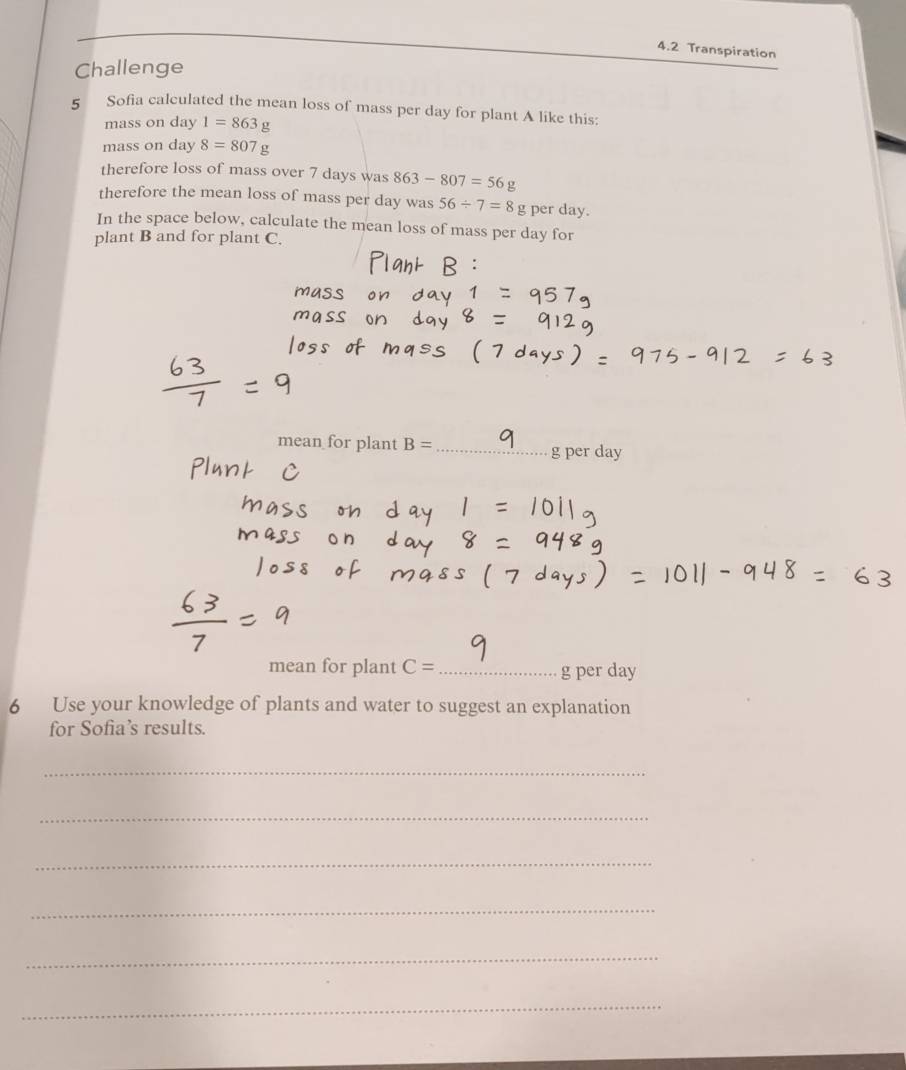 4.2 Transpiration
Challenge
5 Sofia calculated the mean loss of mass per day for plant A like this:
mass on day 1 = 863 g
mass on day 8 = 807 g
therefore loss of mass over 7 days was 863 − 807 = 56 g
therefore the mean loss of mass per day was 56 ÷ 7 = 8 g per day.
In the space below, calculate the mean loss of mass per day for
plant B and for plant C.
Plant B :
mass on day 1 = 957g
mass on day 8 = 912g
loss of mass (7 days) = 975 - 912 = 63
63/7 = 9
mean for plant B = 9 g per day
Plant C
mass on day 1 = 1011g
mass on day 8 = 948g
loss of mass (7 days) = 1011 - 948 = 63
63/7 = 9
mean for plant C = 9 g per day
6 Use your knowledge of plants and water to suggest an explanation
for Sofia's results.